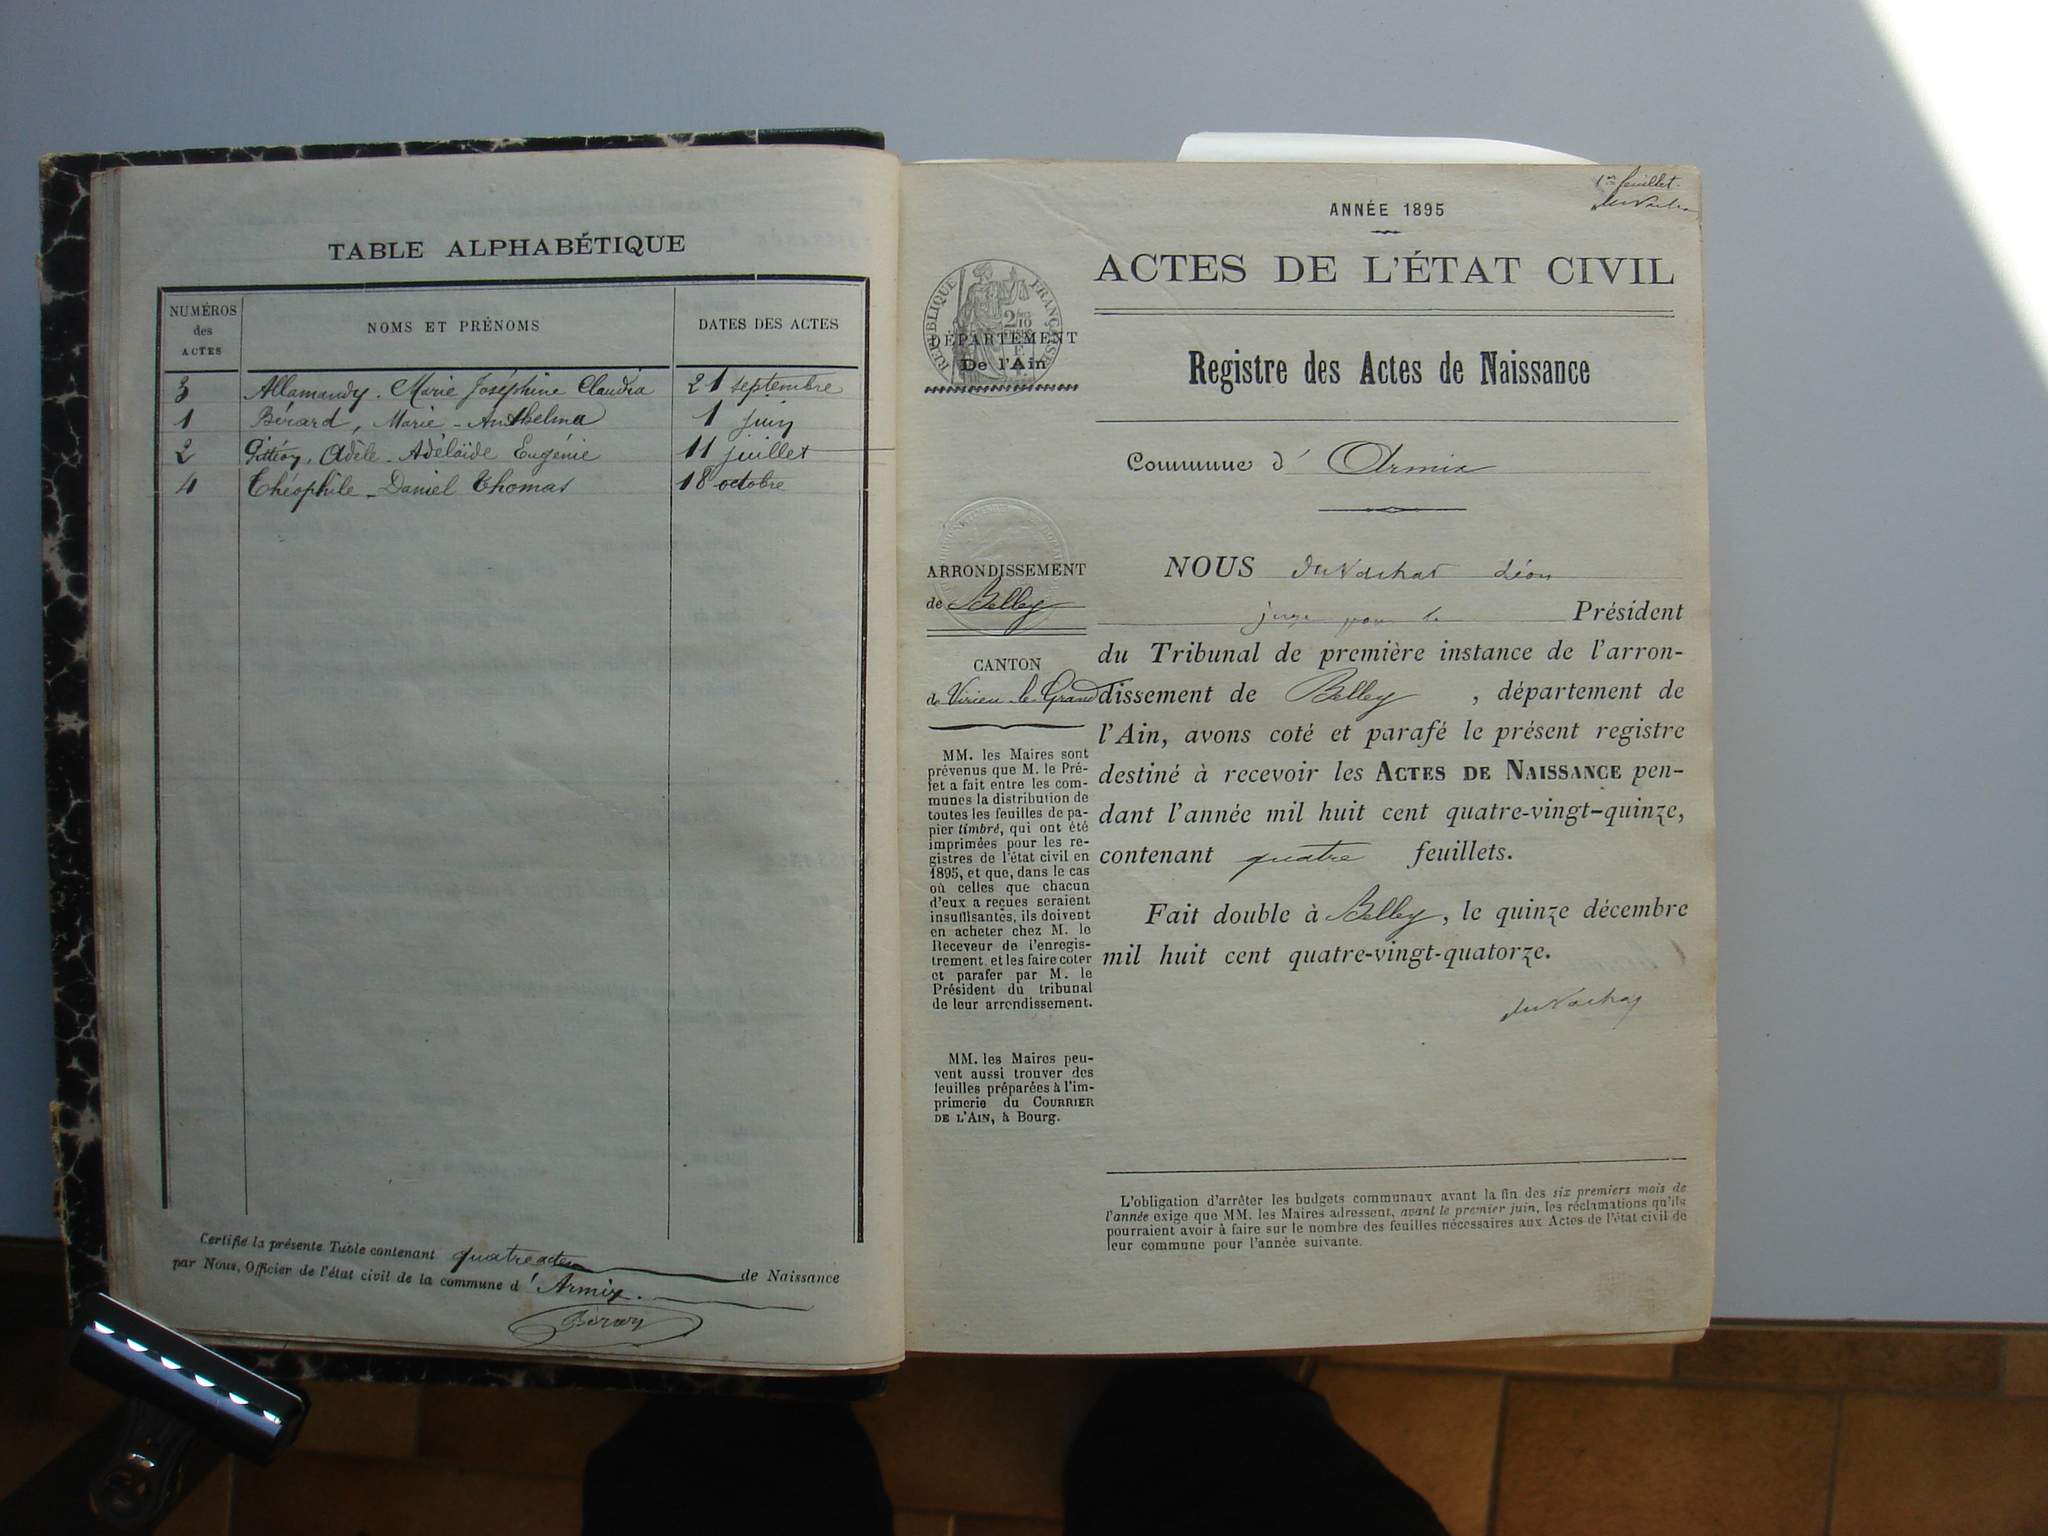 TABLE ALPHABÉTIQUE
NUMÉROS
des
ACTES
NOMS ET PRÉNOMS
DATES DES ACTES
3 Allamandy. Marie Joséphine Claudia 21 septembre
1 Bérard, Marie-Anthelma 1 juin
2 Adèle-Adélaïde Eugénie 11 juillet
4 Théophile-Daniel Thomas 18 octobre
Certifié la présente Table contenant quatre actes de Naissance
par Nous, Officier de l'état civil de la commune d'Armix.
1er feuillet.
ANNÉE 1895
ACTES DE L'ÉTAT CIVIL
RÉPUBLIQUE FRANÇAISE
DÉPARTEMENT
De l'Ain
Registre des Actes de Naissance
Commune d'Armix
ARRONDISSEMENT
de Belley
CANTON
de Virieu-le-Grand
MM. les Maires sont
prévenus que M. le Pré-
fet a fait entre les com-
munes la distribution de
toutes les feuilles de pa-
pier timbré, qui ont été
imprimées pour les re-
gistres de l'état civil en
1895, et que, dans le cas
où celles que chacun
d'eux a reçues seraient
insuffisantes, ils doivent
en acheter chez M. le
Receveur de l'enregis-
trement, et les faire coter
et parafer par M. le
Président du tribunal
de leur arrondissement.
MM. les Maires peu-
vent aussi trouver des
feuilles préparées à l'im-
primerie du COURRIER
DE L'AIN, à Bourg.
NOUS duVachat Léon
juge pour le Président
du Tribunal de première instance de l'arron-
dissement de Belley, département de
l'Ain, avons coté et parafé le présent registre
destiné à recevoir les ACTES DE NAISSANCE pen-
dant l'année mil huit cent quatre-vingt-quinze,
contenant quatre feuillets.
Fait double à Belley, le quinze décembre
mil huit cent quatre-vingt-quatorze.
duVachat
L'obligation d'arrêter les budgets communaux avant la fin des six premiers mois de
l'année exige que MM. les Maires adressent, avant le premier juin, les réclamations qu'ils
pourraient avoir à faire sur le nombre des feuilles nécessaires aux Actes de l'état civil de
leur commune pour l'année suivante.